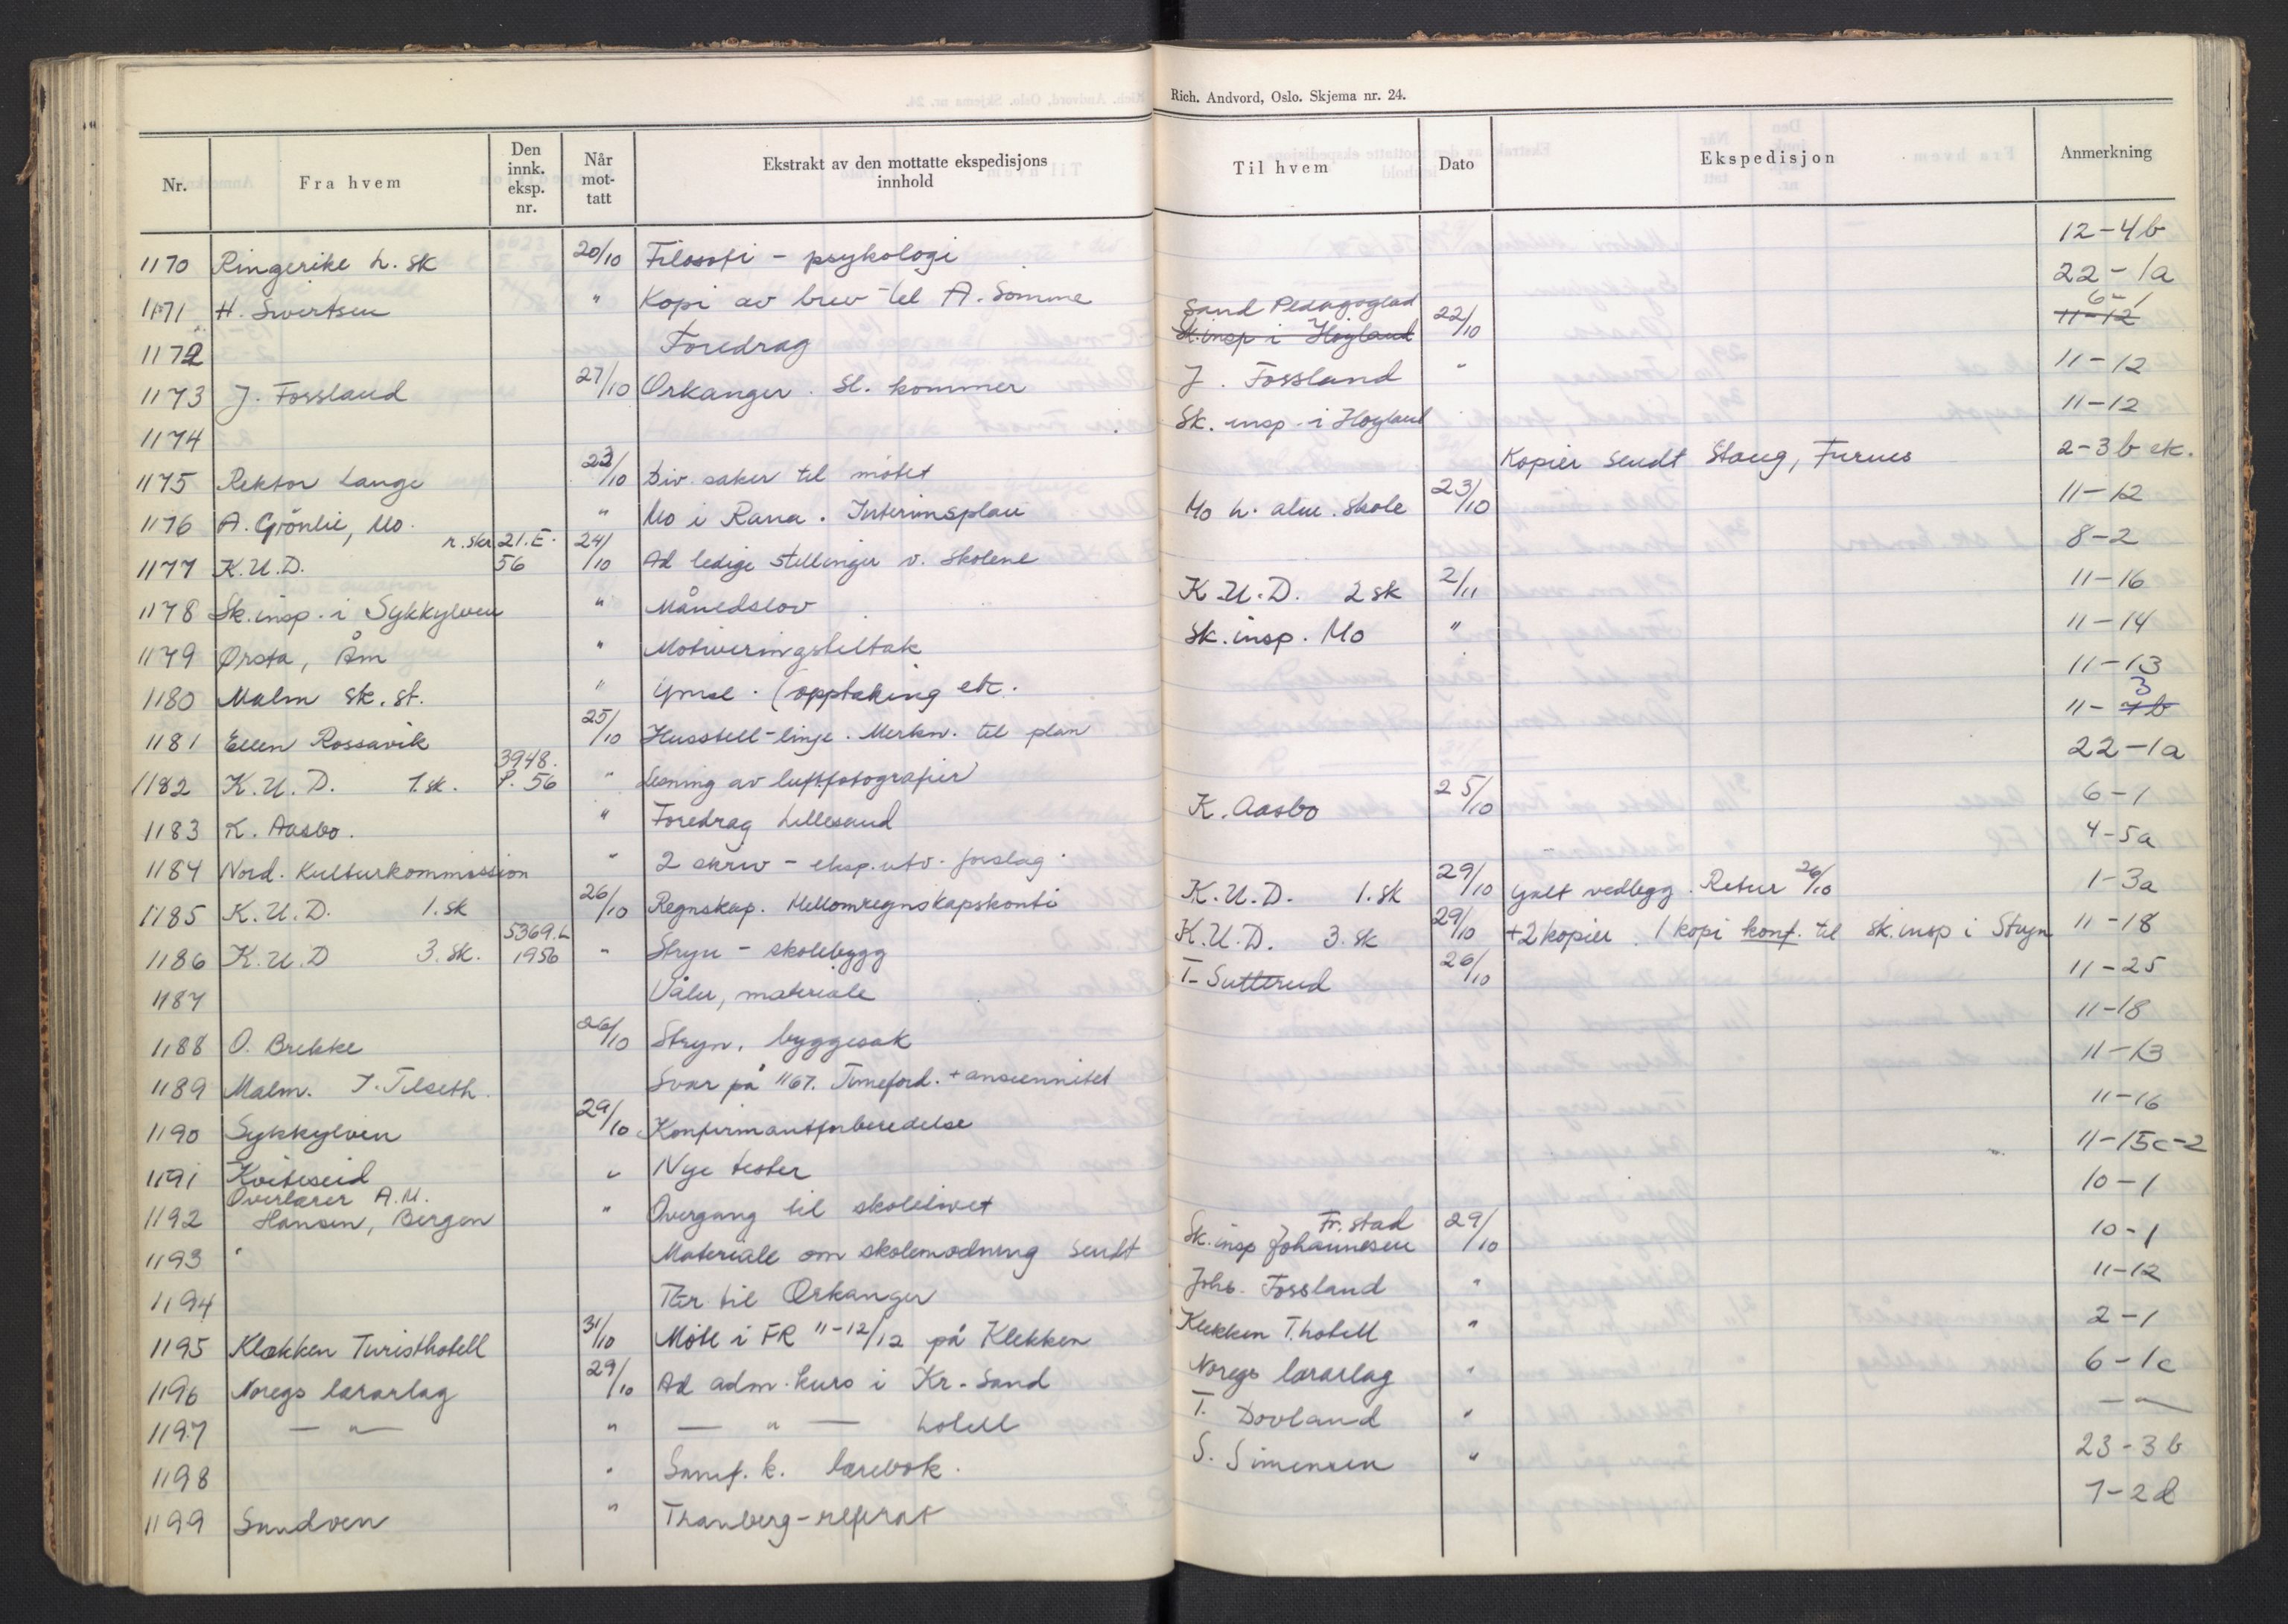 Rich. Andvord, Oslo. Skjema nr. 24.
Nr. Fra hvem Den innk. eksp. nr. Når mot- tatt Ekstrakt av den mottatte ekspedisjons innhold Til hvem Dato Ekspedisjon Anmerkning
1170 Ringerike h. sk 20/10 Filosofi - psykologi 12-4b
1171 H. Sivertsen " Kopi av brev til A. Sømme 22-1a
1172 Foredrag Sand Pedagoglad Sk.insp i Høyland 22/10 6-1 11-12
1173 J. Fossland 27/10 Orkanger. Sl. kommer J. Fossland " 11-12
1174 Sk. insp. i Høyland 11-12
1175 Rektor Lange 23/10 Div. saker til møtet Kopier sendt Staug, Furnes 2-3b etc.
1176 A. Grönlie, Mo. " Mo i Rana. Interimsplan Mo h. alm. skole 23/10 11-12
1177 K.U.D. r.skr. 21.E. 56 24/10 Ad ledige stillinger v. skolene 8-2
1178 Sk.insp. i Sykkylven " Månedslov K.U.D. 2 sk 2/11 11-16
1179 Ørsta, Åm " Motiveringstiltak Sk.insp. Mo " 11-14
1180 Malm sk. st. " Ymse. (opptaking etc. 11-13
1181 Ellen Rossavik 25/10 Husstell-linje. Merkn. til plan 11-7b 3
1182 K.U.D. 1.sk. 3948. P. 56 " Lesning av luftfotografier 22-1a
1183 K. Aasbo. " Foredrag Lillesand K. Aasbo 25/10 6-1
1184 Nord. Kulturkommission " 2 skriv - eksp.utv. forslag. 4-5a
1185 K.U.D. 1.sk 26/10 Regnskap. Mellomregnskapskonti K.U.D. 1.sk 29/10 Galt vedlegg. Retur 26/10 1-3a
1186 K.U.D 3.sk. 5369.L 1956 " Stryn - skolebygg K.U.D. 3.sk 29/10 +2 kopier. 1 kopi konf. til sk.insp i Stryn 11-18
1187 Våler, materiale T. Sutterud 26/10 11-25
1188 O. Brekke 26/10 Stryn, byggesak 11-18
1189 Malm. J. Tilseth. Svar på 1167. Timeford. + ansiennitet 11-13
1190 Sykkylven 29/10 Konfirmantforberedelse 11-16
1191 Kviteseid " Nye tester 11-15c-2
1192 Overlærer A.M. Hansen, Bergen " Overgang til skolelivet 10-1
1193 " Materiale om skolemodning sendt Sk.insp Johannesen Fr.stad 29/10 10-1
1194 Til Orkanger Johs. Fossland " 11-12
1195 Klækken Turisthotell 31/10 Møte i FR 11-12/12 på Klekken Klekken T.hotell " 2-1
1196 Noregs lærarlag 29/10 Ad adm. kurs i Kr.sand Noregs lærarlag " 6-1c
1197 — " — " — " — hotell T. Dovland " — " —
1198 " Samf. k. lærebok. S. Simensen " 23-3b
1199 Sundven " Tranberg-referat 7-2d